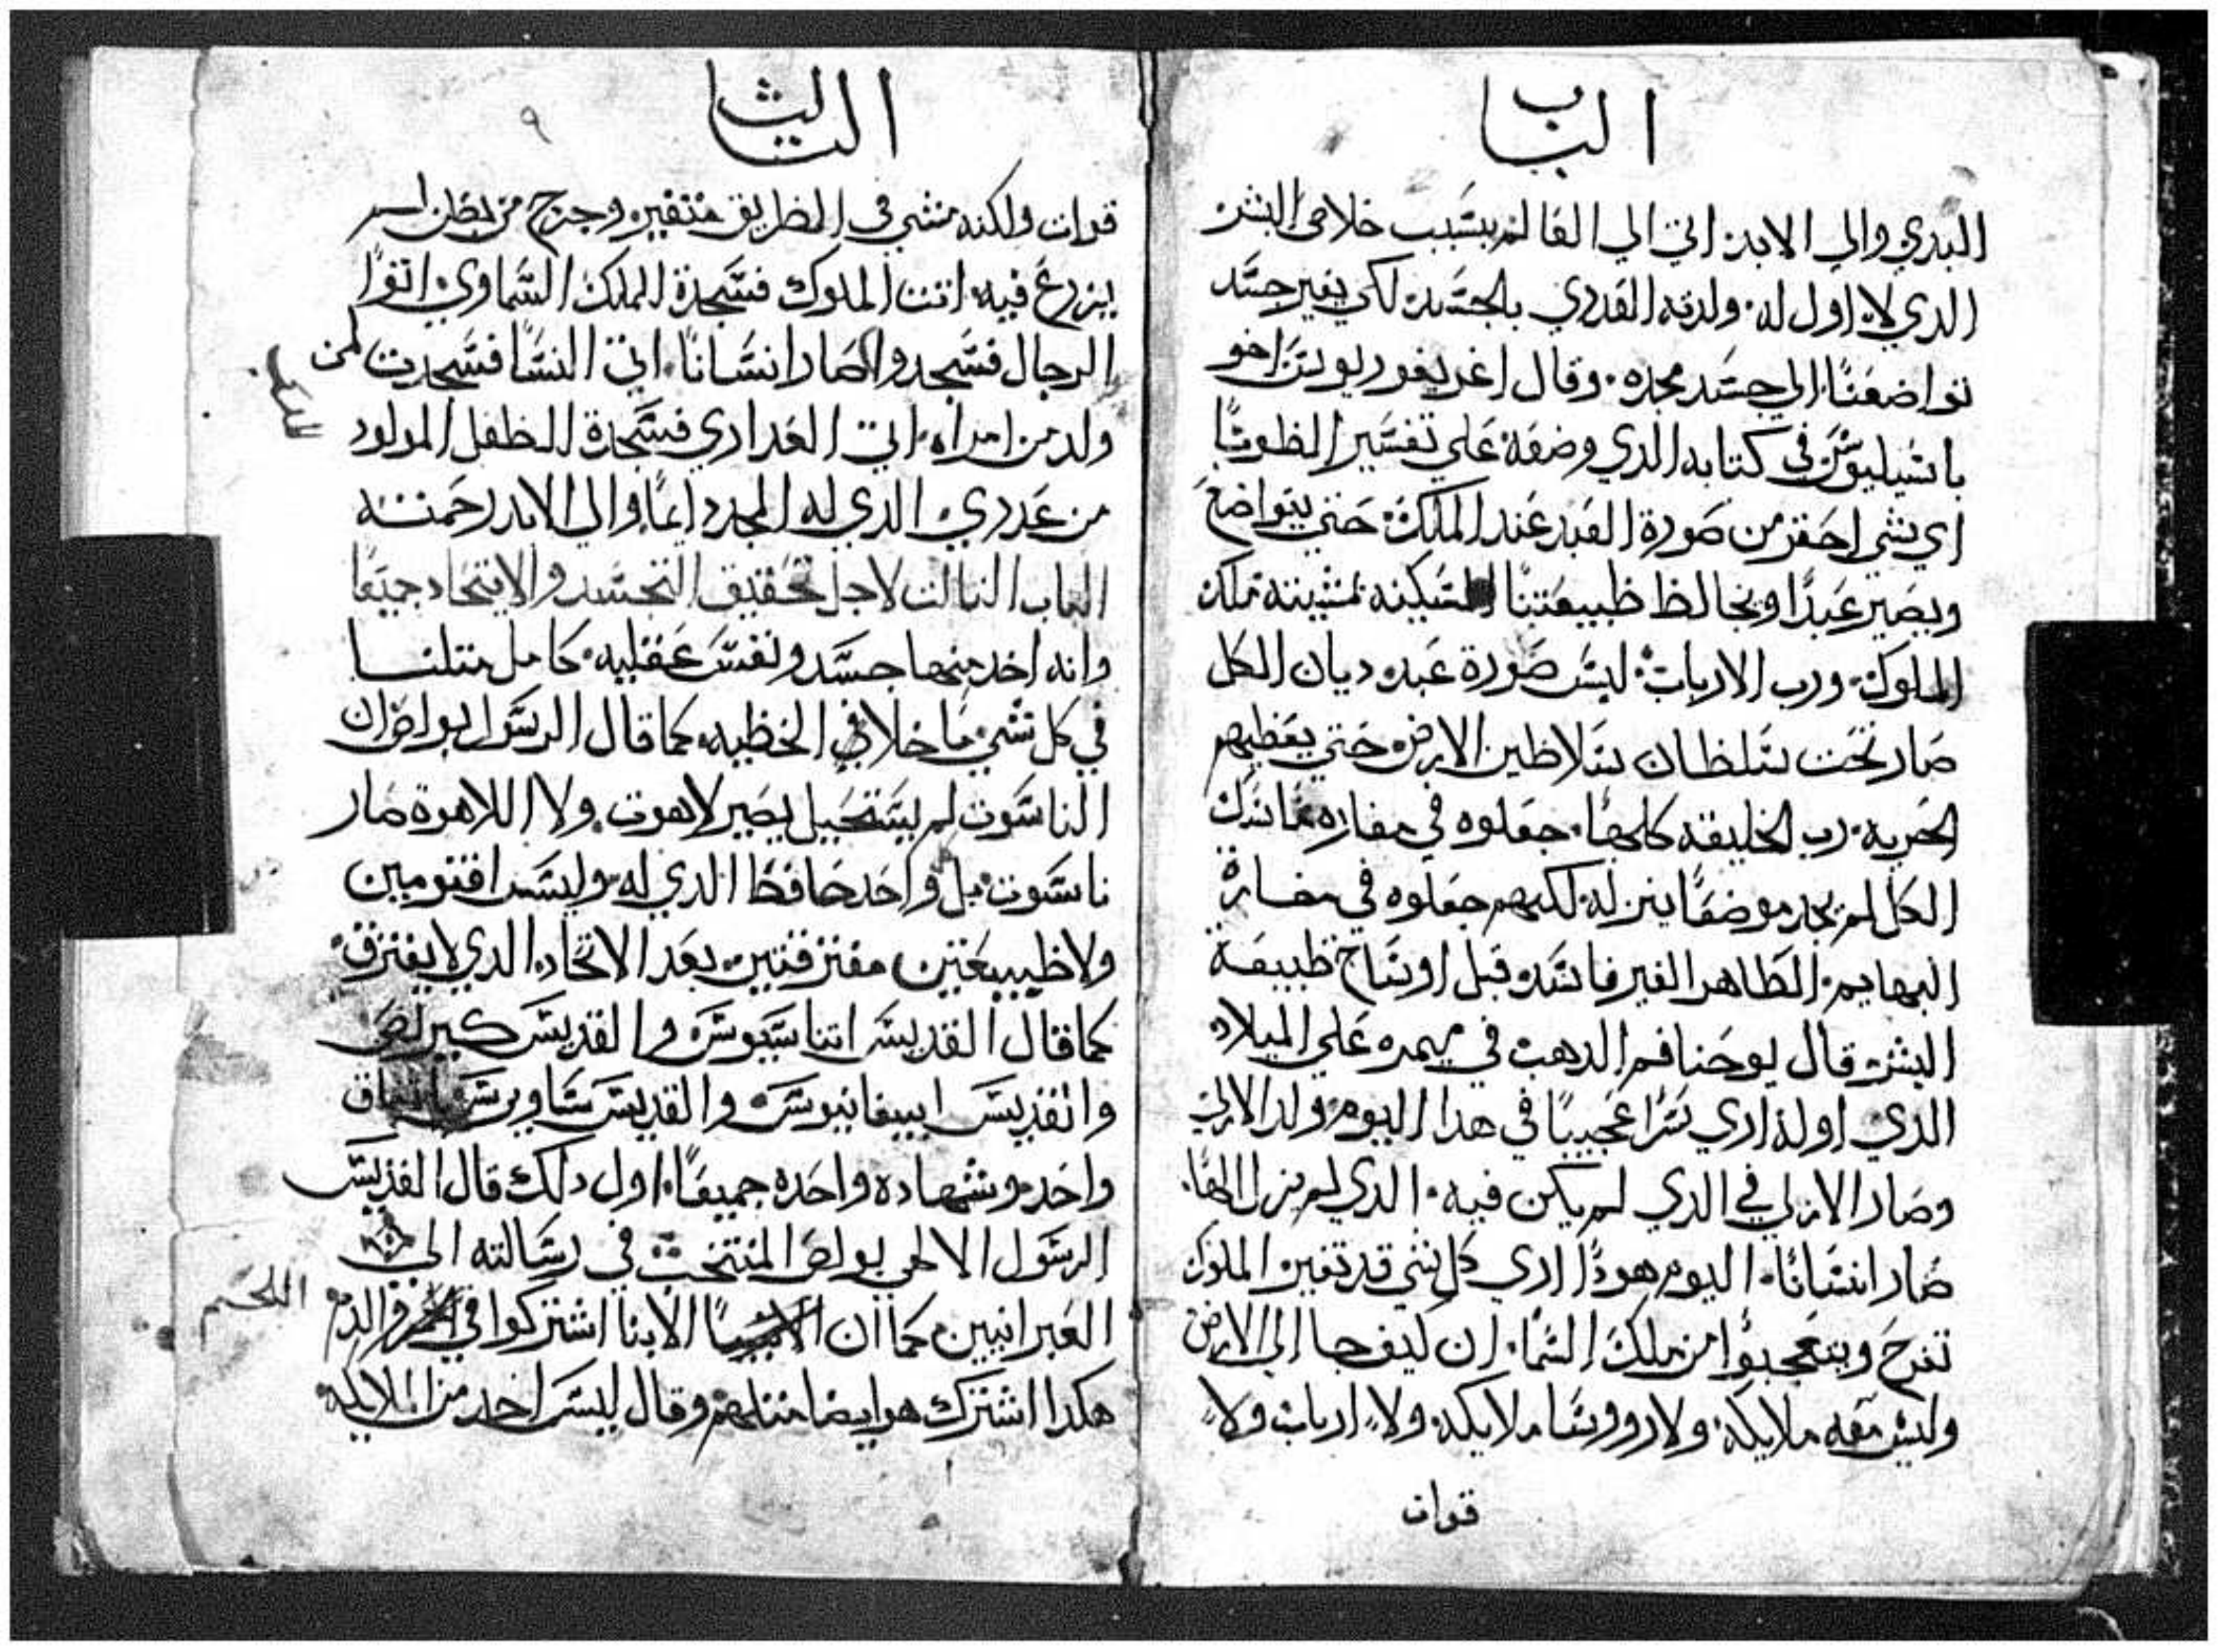 الباب
البدي والي الابد اتي الي العالم بسبب خلاص البشر
الدي لا اول له ولدته العدري بالجسد لكي يغير جسد
تواضعنا الي جسد مجده وقال اغريغوريوس اخو
باسيليوس في كتابه الدي وضعه علي تفسير الطوبا
اي شي احقر من صورة العبد عند الملك حتي يتواضع
ويصير عبدًا ويخالط طبيعتنا المسكينه بمشيته ملك
الملوك ورب الارباب لبس صورة عبد ديان الكل
صار تحت سلطان سلاطين الارض حتي يعطيهم
الحريه رب الخليقه كلها جعلوه في مغاره ماسك
الكل لم يجد موضعًا ينزله لكنهم جعلوه في مغارة
البهايم الطاهر الغير فاسد قبل اوساخ طبيعة
البشر قال يوحنا فم الدهب في ميمره علي الميلاد
الدي اوله اري سرا عجيبًا في هدا اليوم ولد الازلي
وصار الازلي في الدي لم يكن فيه الدي لم يزل الها
صار انسانا اليوم هودا اري كل شي قد تغير الملوك
تفرح ويتعجبوا من ملك السما ان كيف جا الي الارض
وليس معه ملايكة ولا رووسا ملايكة ولا ارباب ولا
قوات
الثالث
٩
قوات ولكنه مشي في الطريق متغير وخرج من بطن لم
يزرع فيه اتت الملوك فسجدة للملك السماوي اتوا
الرجال فسجدوا صار انسانا اتي النسا فسجدت لمن
ولد من امراه اتي العداري فسجدة للطفل المولود
من عدري الدي له المجد دايمًا والي الابد رحمته
الباب التالت لاجل تحقيق التجسد والايتحاد جميعًا
وانه اخد منها جسد ونفس عقليه كامل متلنا
في كل شي ما خلا في الخطيه كما قال الرسول بولص ان
الناسوت لم يستحيل يصير لاهوت ولا اللاهوة صار
ناسوت بل واحد حافظ الدي له وليس اقنومين
ولا طبيعتين مفترقتين بعد الاتحاد الدي لا يفترق
كما قال القديس اتناسيوس والقديس كيرلص
والقديس ابيفانيوس والقديس ساويرس باتفاق
واحد وشهاده واحده جميعًا اول دلك قال القديس
الرسول الالهي بولص المنتخب في رسالته الي
العبرانيين كما ان الابنا اشتركوا في والدم
اللحم
هكدا اشترك هو ايضا متلهم وقال ليس احد من الملايكه